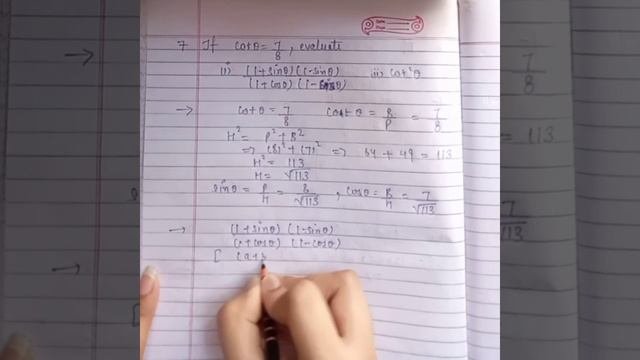 7 If cotθ = 7/8, evaluate
i) (1+sinθ)(1-sinθ) / (1+cosθ)(1-cosθ) ii) cot²θ
→ cotθ = 7/8 cotθ = B/P = 7/8
H² = P² + B²
⇒ (8)² + (7)² ⇒ 64 + 49 = 113
H² = 113
H = √113
sinθ = P/H = 8/√113, cosθ = B/H = 7/√113
→ (1+sinθ)(1-sinθ)
(1+cosθ)(1-cosθ)
[ (a+b